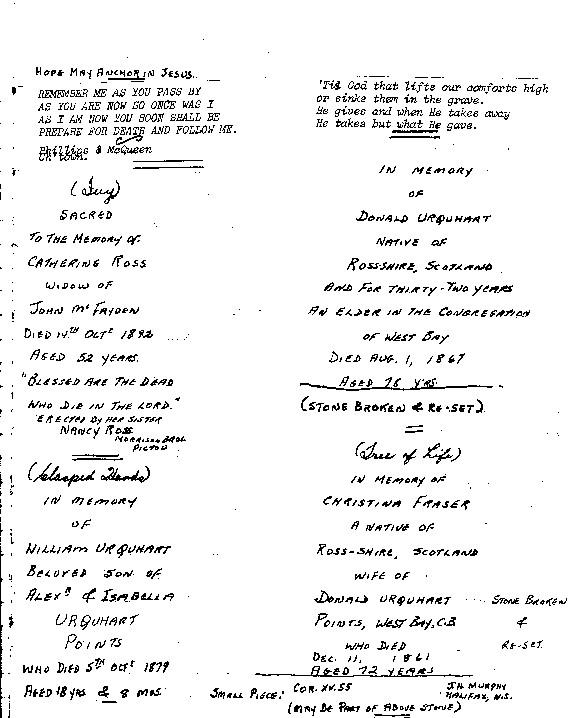 HOPE MAY ANCHOR IN JESUS.
REMEMBER ME AS YOU PASS BY
AS YOU ARE NOW SO ONCE WAS I
AS I AM NOW YOU SOON SHALL BE
PREPARE FOR DEATH AND FOLLOW ME.
Phillips & McQueen
Ch'town.
(Ivy)
SACRED
TO THE MEMORY OF
CATHERINE ROSS
WIDOW OF
JOHN Mc FAYDEN
DIED 14TH OCTR 1892
AGED 52 YEARS.
"BLESSED ARE THE DEAD
WHO DIE IN THE LORD."
ERECTED BY HER SISTER
NANCY ROSS
MORRISON BROS.
PICTOU
(Clasped Hands)
IN MEMORY
OF
WILLIAM URQUHART
BELOVED SON OF
ALEXR & ISABELLA
URQUHART
POINTS
WHO DIED 5TH OCTR 1879
AGED 18 YRS & 8 MOS.
'Til God that lifts our comforts high
or sinks them in the grave.
He gives and when He takes away
He takes but what He gave.
IN MEMORY
OF
DONALD URQUHART
NATIVE OF
ROSS-SHIRE, SCOTLAND
AND FOR THIRTY-TWO YEARS
AN ELDER IN THE CONGREGATION
OF WEST BAY
DIED AUG. 1, 1867
AGED 78 YRS
(STONE BROKEN & RE-SET)
(Tree of Life)
IN MEMORY OF
CHRISTINA FRASER
A NATIVE OF
ROSS-SHIRE, SCOTLAND
WIFE OF
DONALD URQUHART
POINTS, WEST BAY, C.B
WHO DIED
DEC. 11, 1861
AGED 72 YEARS
STONE BROKEN
&
RE-SET.
SMALL PIECE: COR. XV. 55
J.H. MURPHY
HALIFAX, N.S.
(MAY BE PART OF ABOVE STONE)